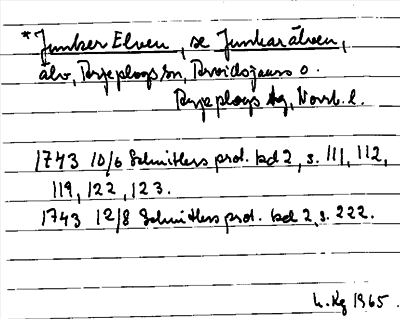 *Junker Elven, se Junkarälven,
älv, Arjeplogs sn, Arvidsjaurs o.
Arjeplogs tg, Norrb. l.
1743 10/6 Schnitlers prot. bd 2, s. 111, 112,
119, 122, 123.
1743 12/8 Schnitlers prot. bd 2, s. 222.
Kg 1965.